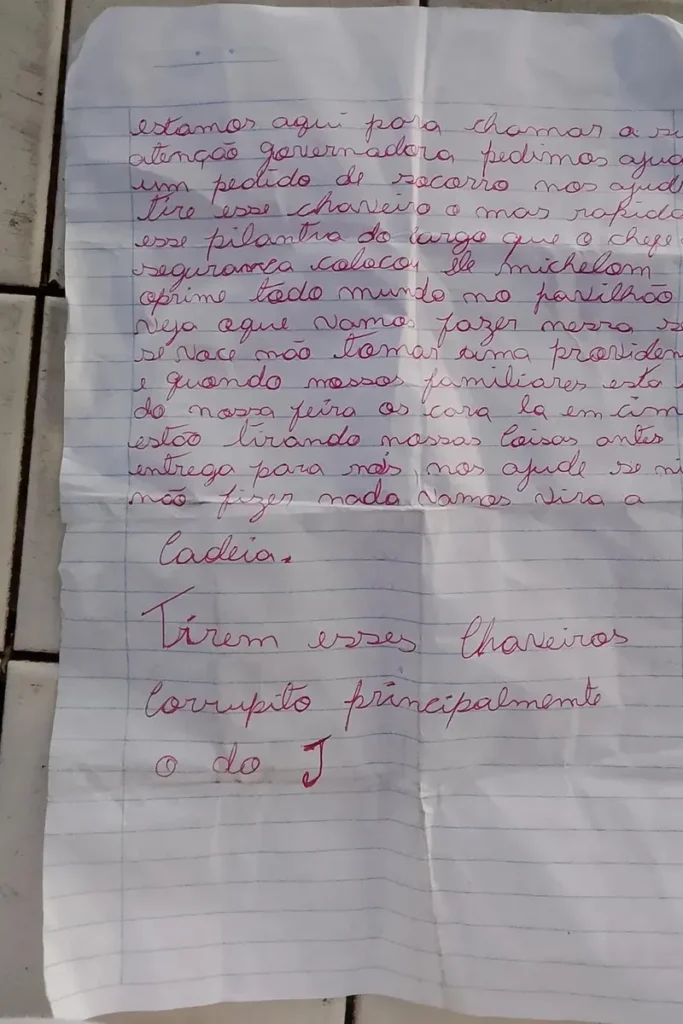 estamos aqui para chamar a su
atenção governadora, pedimos ajud
um pedido de socorro nos ajud
tire esse chaveiro o mas rapido
esse pilantra do cargo que o chefe
segurança colocou ele michelom
oprime todo mundo no pavilhão
veja oque vamos fazer nessa se
se voce não tomar uma providen
e quando nossos familiares esta
do nossa feira os cara la em cim
estão tirando nossas coisas antes
entrega para nós, nos ajude se ni
não fizer nada vamos vira a
Cadeia.
Tirem esses Chaveiros
Corrupito principalmente
o do J